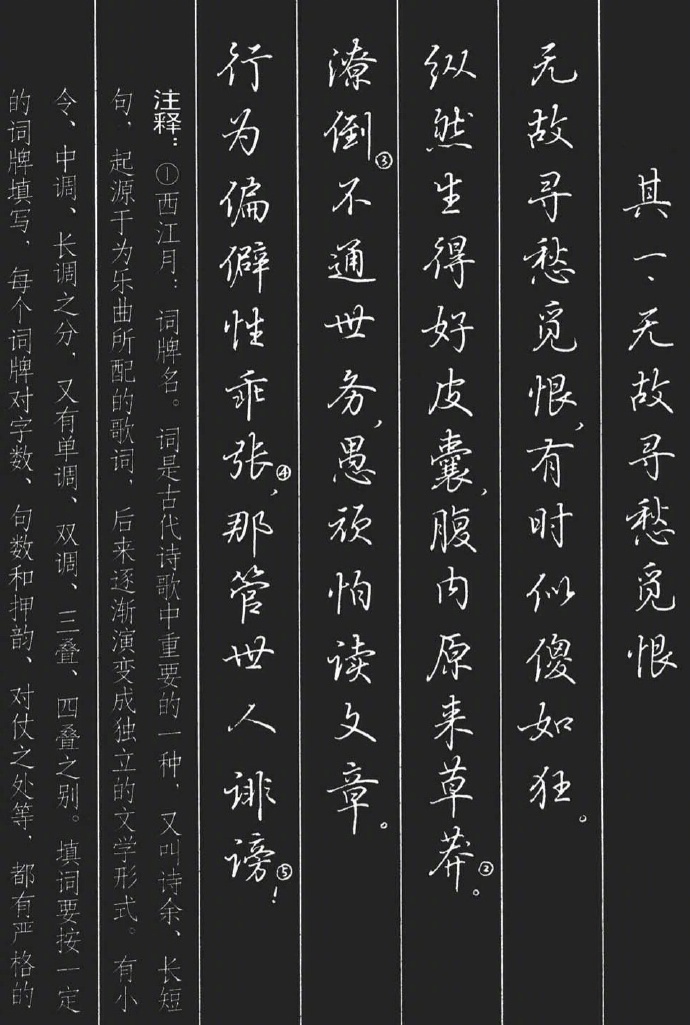 其一、无故寻愁觅恨
无故寻愁觅恨,有时似傻如狂。
纵然生得好皮囊,腹内原来草莽②。
潦倒③不通世务,愚顽怕读文章。
行为偏僻性乖张④,那管世人诽谤⑤!
注释:①西江月:词牌名。词是古代诗歌中重要的一种,又叫诗余、长短
句,起源于为乐曲所配的歌词,后来逐渐演变成独立的文学形式。有小
令、中调、长调之分,又有单调、双调、三叠、四叠之别。填词要按一定
的词牌填写,每个词牌对字数、句数和押韵、对仗之处等,都有严格的